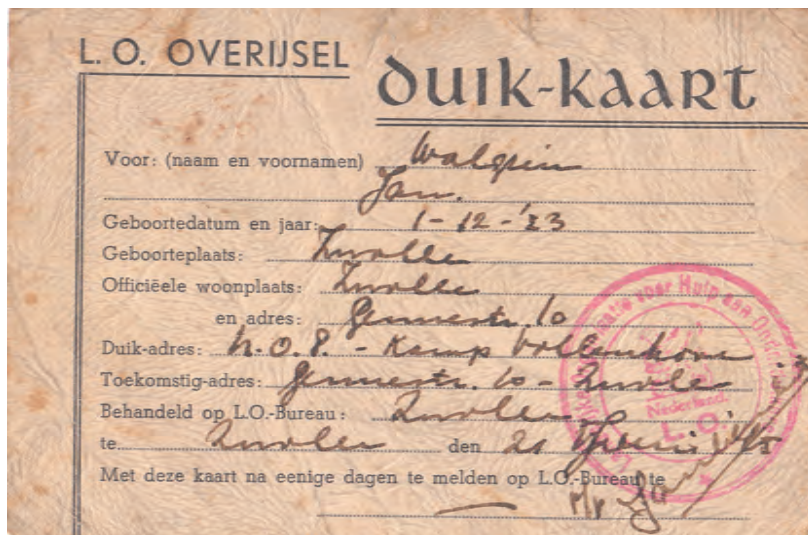 L. O. OVERIJSEL
duik-kaart
Voor: (naam en voornamen) Walgien
Jan.
Geboortedatum en jaar: 1-12-'23
Geboorteplaats: Zwolle
Officiëele woonplaats: Zwolle
en adres: 10
Duik-adres: N.O.P. - Kamp Vollenhove
Toekomstig-adres: 10 - Zwolle
Behandeld op L.O.-Bureau: Zwolle
te Zwolle den 21
Met deze kaart na eenige dagen te melden op L.O.-Bureau te
voor Hulp aan
Nederland.
L. O.